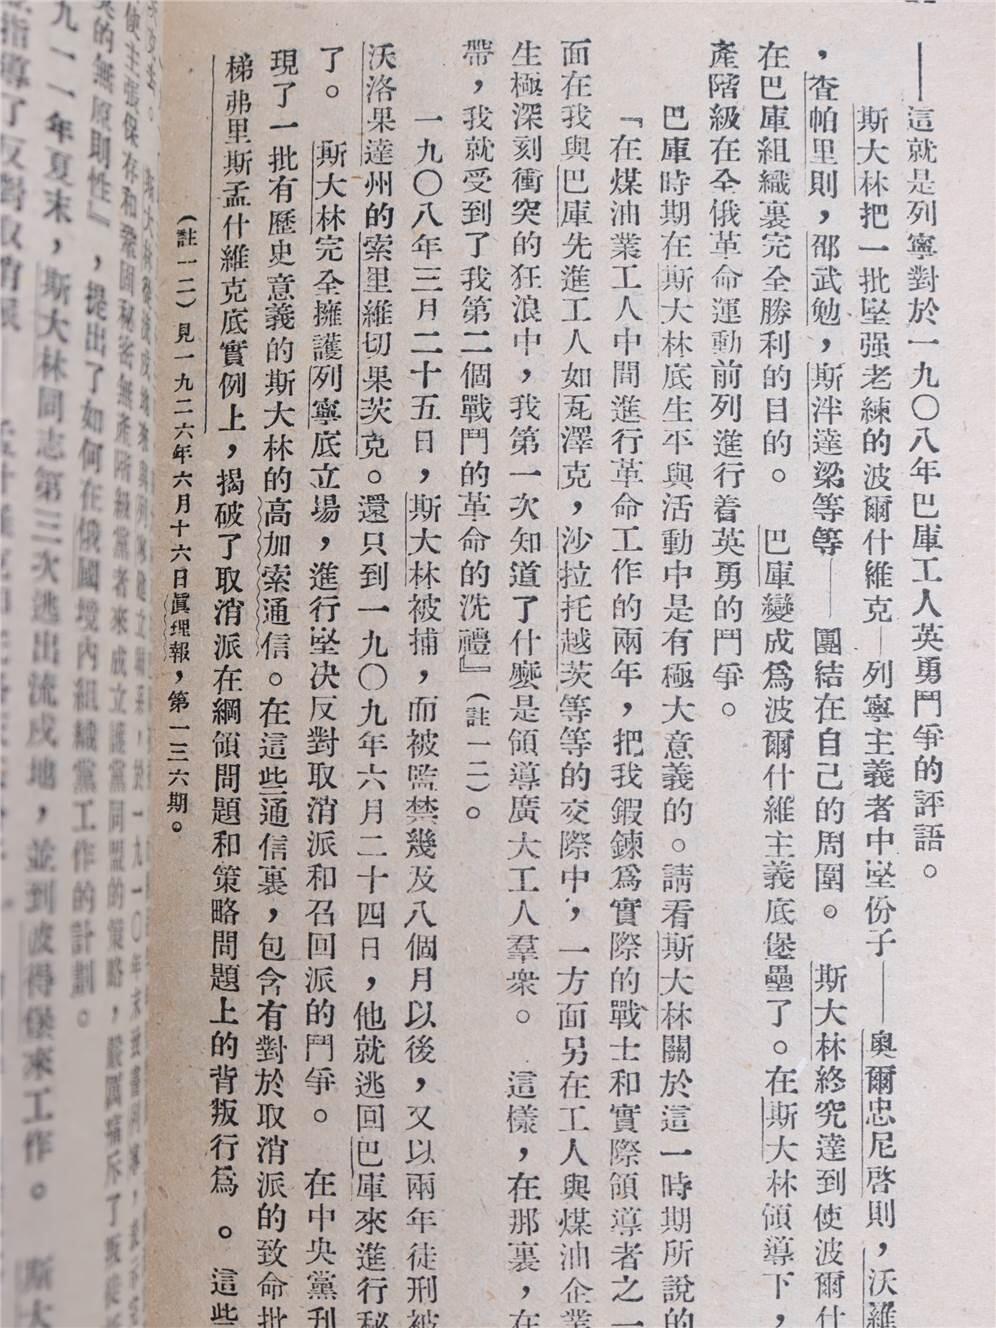 ——這就是列寧對於一九〇八年巴庫工人英勇鬥爭的評語。
斯大林把一批堅强老練的波爾什維克—列寧主義者中堅份子——奧爾忠尼啓則，沃羅
，查帕里則，邵武勉，斯泮達梁等等——團結在自己的周圍。 斯大林終究達到使波爾什
在巴庫組織裏完全勝利的目的。 巴庫變成爲波爾什維主義底堡壘了。在斯大林領導下，
產階級在全俄革命運動前列進行着英勇的鬥爭。
巴庫時期在斯大林底生平與活動中是有極大意義的。請看斯大林關於這一時期所說的
『在煤油業工人中間進行革命工作的兩年，把我鍛鍊爲實際的戰士和實際領導者之一
面在我與巴庫先進工人如瓦澤克，沙拉托越茨等等的交際中，一方面另在工人與煤油企業
生極深刻衝突的狂浪中，我第一次知道了什麼是領導廣大工人羣衆。 這樣，在那裏，在
帶，我就受到了我第二個戰鬥的革命的洗禮』（註一二）。
一九〇八年三月二十五日，斯大林被捕，而被監禁幾及八個月以後，又以兩年徒刑被
沃洛果達州的索里維切果茨克。還只到一九〇九年六月二十四日，他就逃回巴庫來進行秘
了。 斯大林完全擁護列寧底立場，進行堅决反對取消派和召回派的鬥爭。 在中央黨刊
現了一批有歷史意義的斯大林的高加索通信。在這些通信裏，包含有對於取消派的致命批
梯弗里斯孟什維克底實例上，揭破了取消派在綱領問題和策略問題上的背叛行爲。這些
（註一二）見一九二六年六月十六日眞理報，第一三六期。
使主張保存和鞏固秘密無產階級黨者來成立護黨同盟的策略，嚴厲痛斥了叛徒
的無原則性』，提出了如何在俄國境內組織黨工作的計劃。
九一一年夏末，斯大林同志第三次逃出流戍地，並到波得堡來工作。 斯大
指導了反對取消派